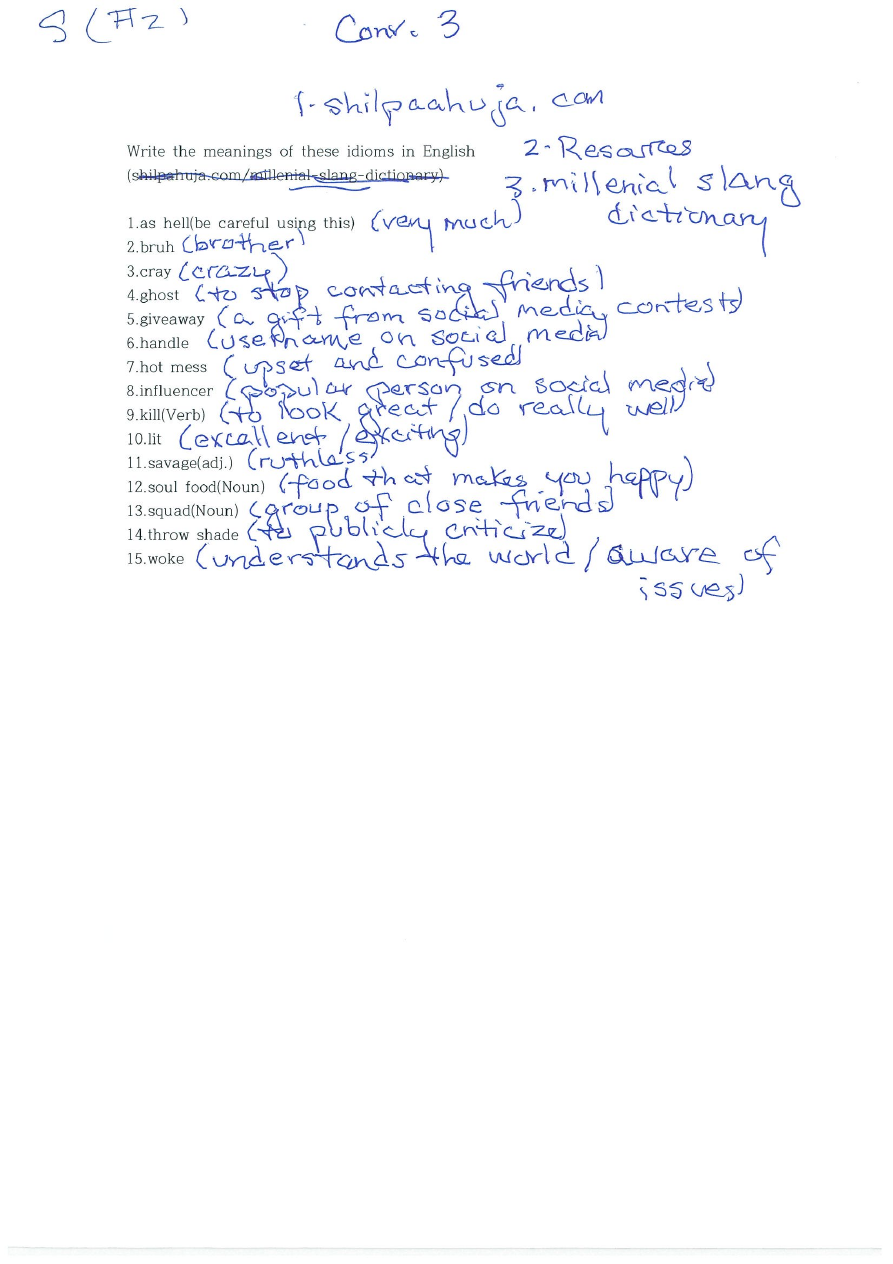 S (H2)
Conv. 3
1- shilpaahuja. com
Write the meanings of these idioms in English
2- Resources
(shilpahuja.com/millenial-slang-dictionary)
3. millenial slang
dictionary
1.as hell(be careful using this) (very much)
2.bruh (brother)
3.cray (crazy)
4.ghost (to stop contacting friends)
5.giveaway (a gift from social media contests)
6.handle (username on social media)
7.hot mess (upset and confused)
8.influencer (popular person on social media)
9.kill(Verb) (to look great / do really well)
10.lit (excallent / exciting)
11.savage(adj.) (ruthless)
12.soul food(Noun) (food that makes you happy)
13.squad(Noun) (group of close friends)
14.throw shade (to publicly criticize)
15.woke (understands the world / aware of
issues)